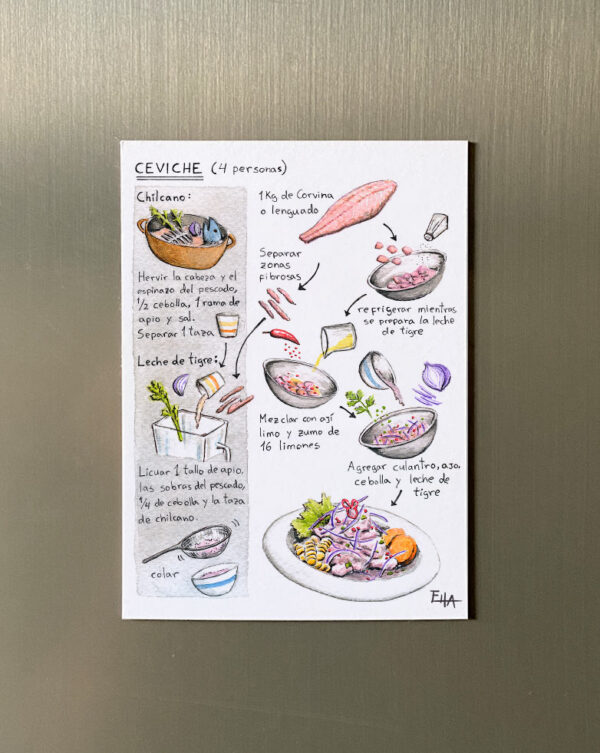 CEVICHE (4 personas)
Chilcano:
Hervir la cabeza y el
espinazo del pescado,
1/2 cebolla, 1 rama de
apio y sal.
Separar 1 taza
Leche de tigre:
Licuar 1 tallo de apio,
las sobras del pescado,
1/4 de cebolla y la taza
de chilcano.
colar
1 Kg de Corvina
o lenguado
Separar
zonas
fibrosas
refrigerar mientras
se prepara la leche
de tigre
Mezclar con ají
limo y zumo de
16 limones
Agregar culantro, ajo,
cebolla y leche de
tigre
EHA